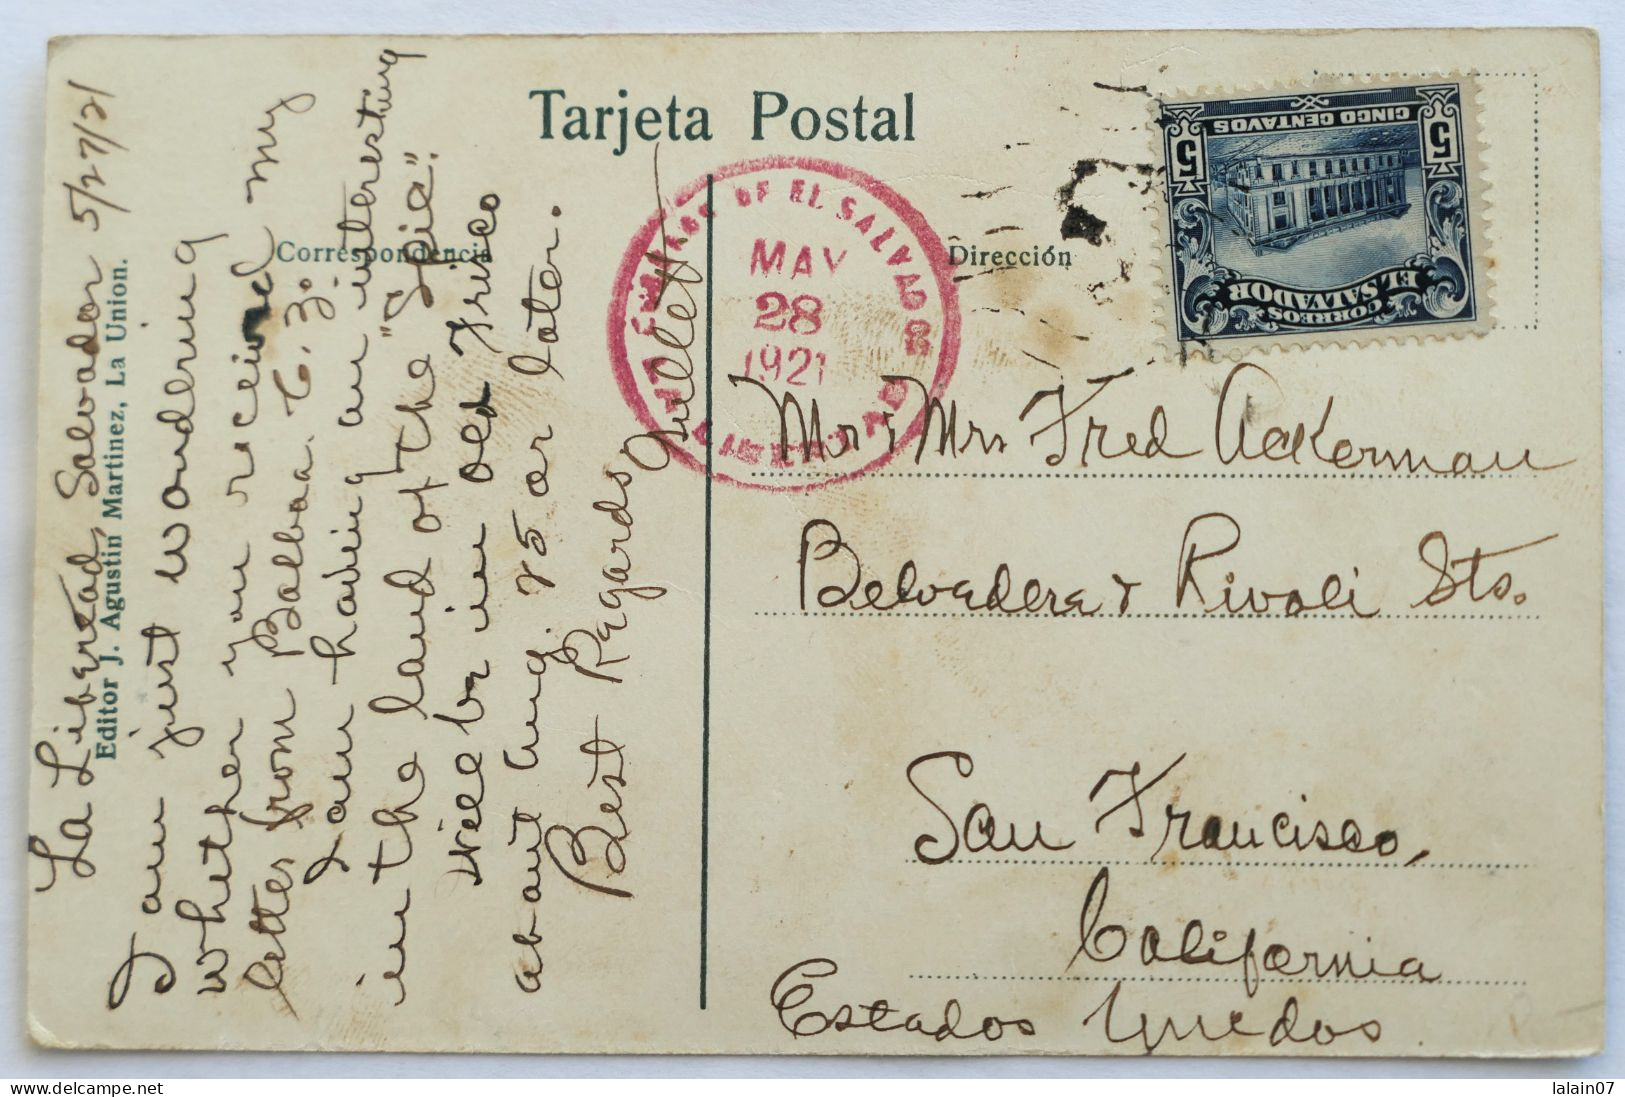 Tarjeta Postal
Correspondencia
Dirección
Editor J. Agustín Martinez, La Union.
La Libertad, Salvador 5/27/21
I am just wondering
whether you received my
letter from Balboa C. Z.
I am having an interesting
in the land of the "Spie".
Will be in old Frisco
about Aug. 25 or later.
Best Regards
OF EL SALVADOR
MAY
28
1921
CORREOS
EL SALVADOR
5 5
CINCO CENTAVOS
Mr & Mrs Fred Ackerman
Belvedere & Rivoli Sts.
San Francisco,
California
Estados Unidos
delcampe.net
lalain07